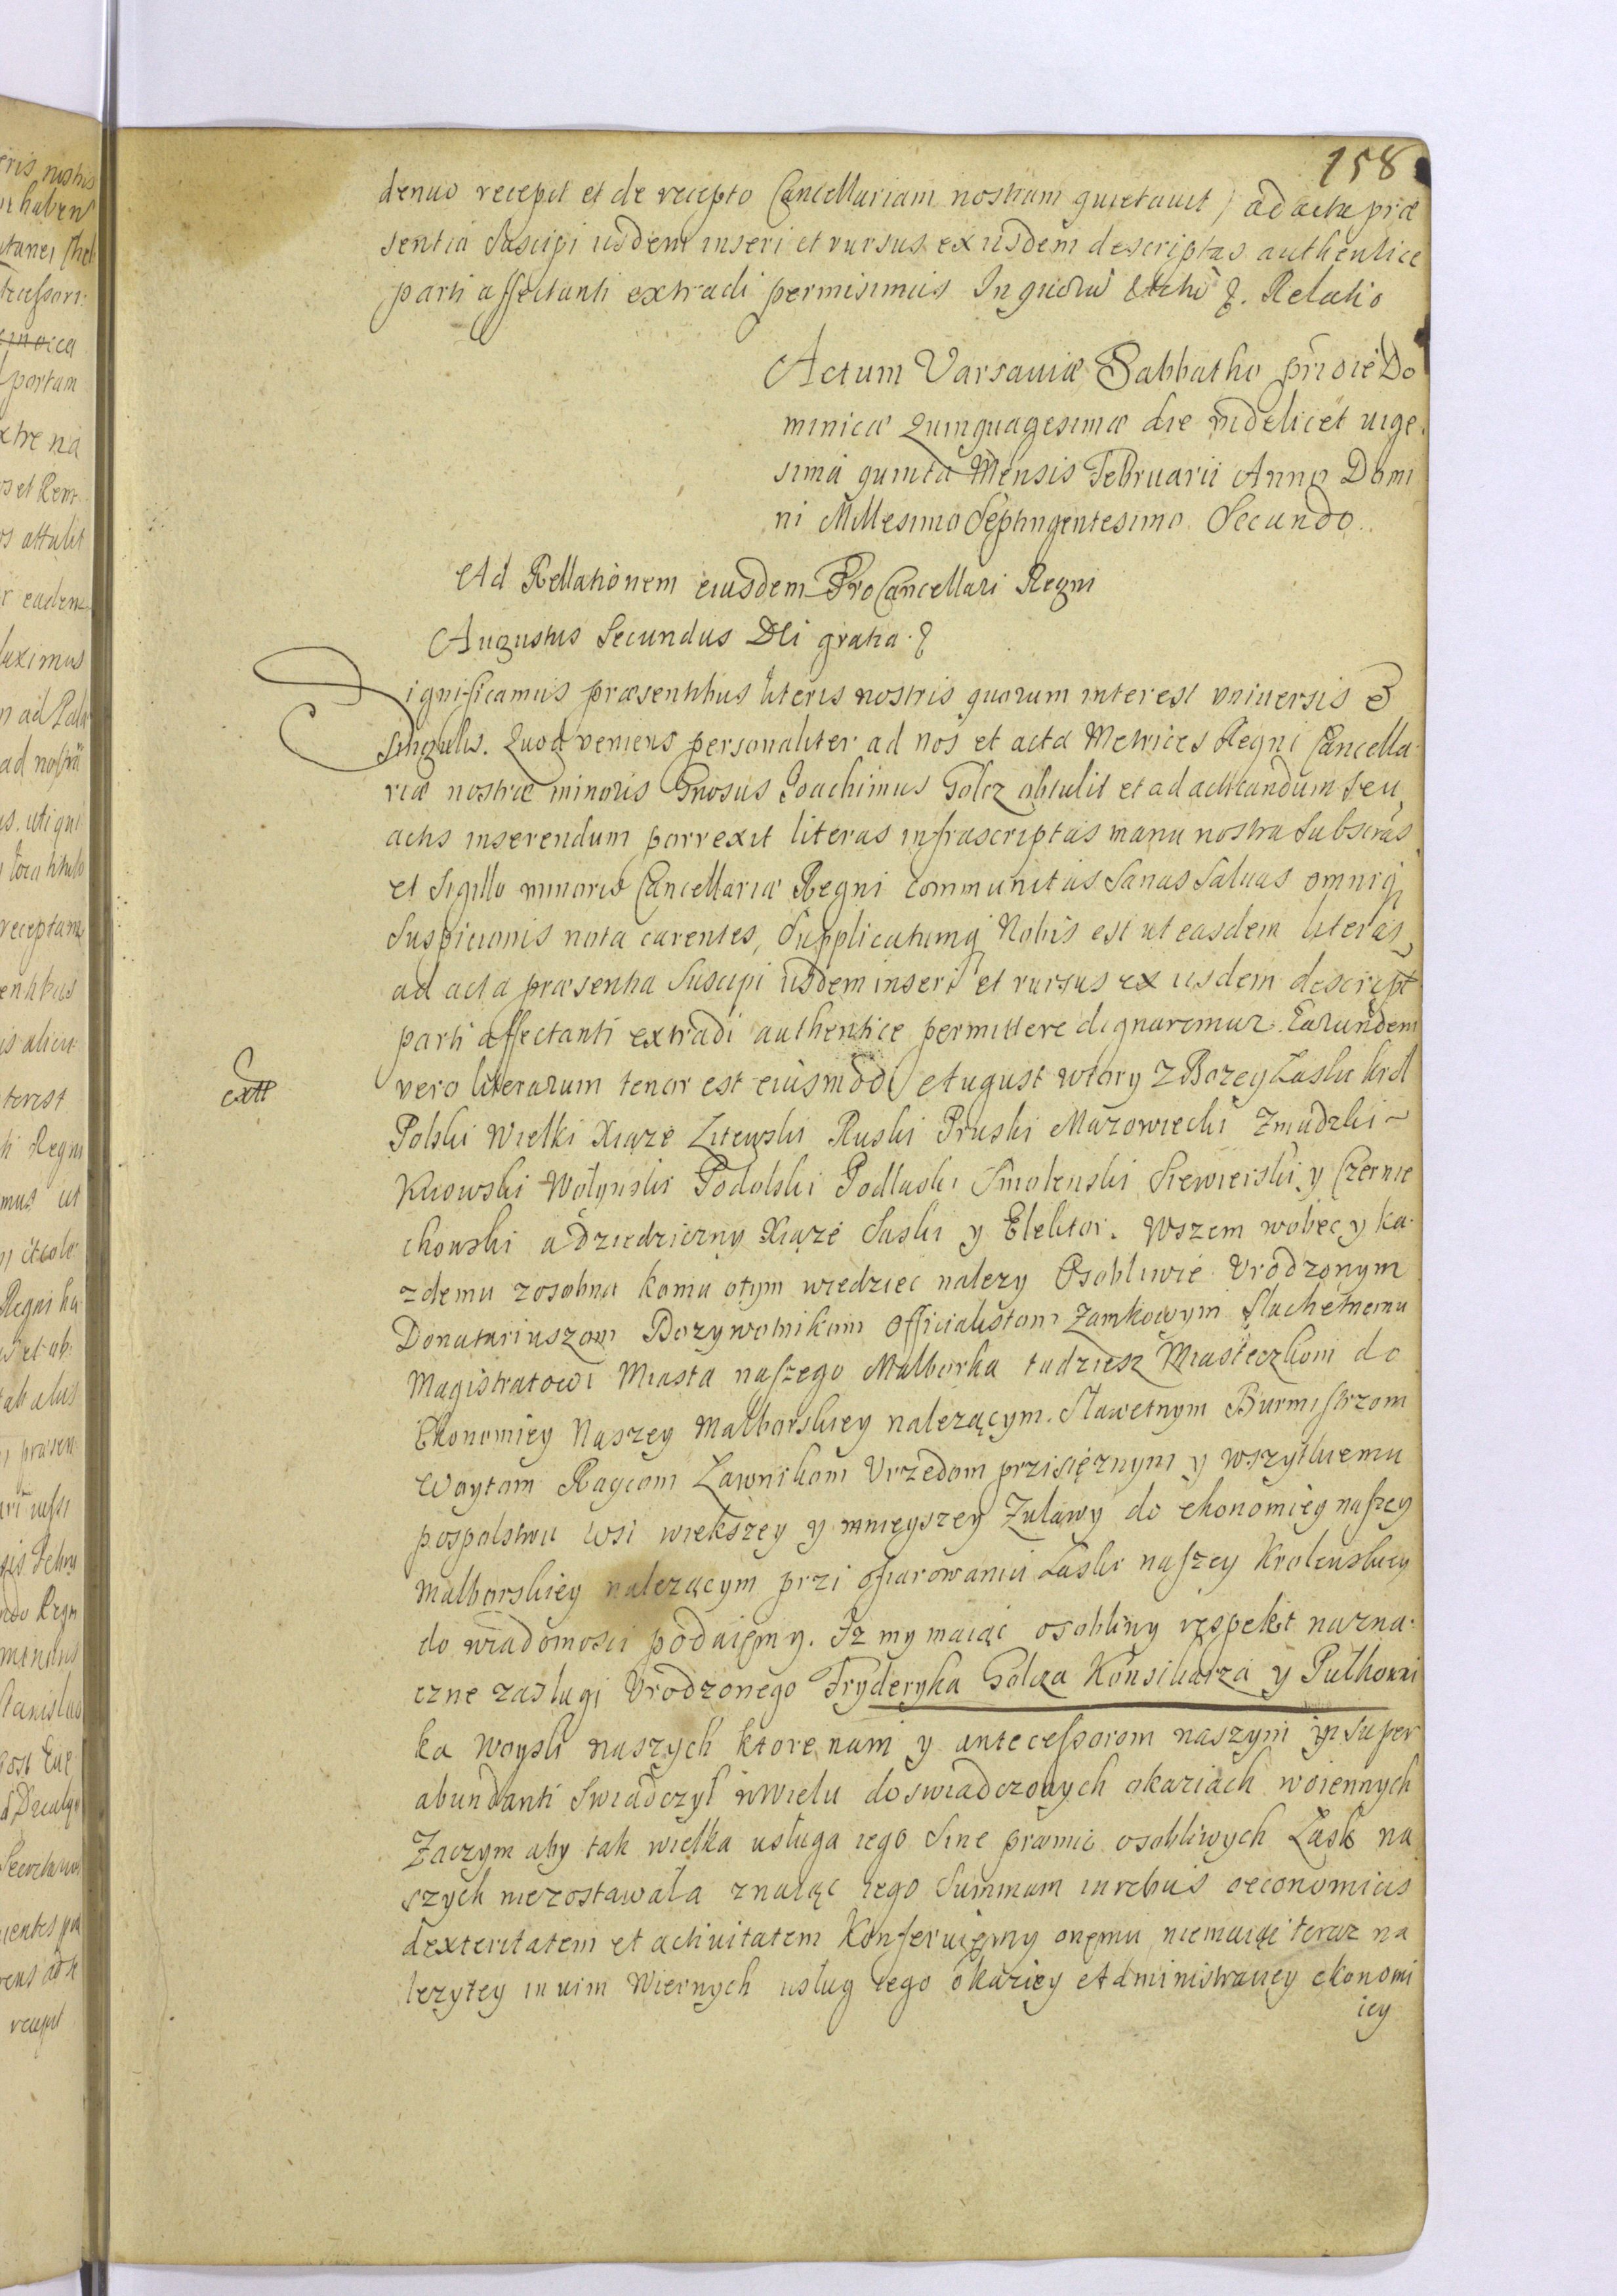 158
denuo recepit et de recepto Cancellariam nostram quietauit) ad acta præ
sentia suscipi iisdem inseri et rursus ex iisdem descriptas authentice
parti affectanti extradi permisimus In quorũ &. Relatio
Actum Varsauiæ Sabbatho pridie Do
minicæ Quinquagesimæ die videlicet uige
sima quinta Mensis Februarii Anno Domi
ni Millesimo Septingentesimo Secundo.
Ad Rellationem eiusdem ProCancellari Regni
Augustus Secundus Dei gratia &
Significamus præsentibus literis nostris quorum interest vniuersis &
singulis. Quod veniens personaliter ad nos et acta Metrices Regni Cancella
riæ nostræ minoris Gnosus Joachimus Golcz obtulit et ad acticandum seu
actis inserendum porrexit literas infrascriptas manu nostra Subscras
et Sigillo minoris Cancellariæ Regni communitas Sanas Saluas omniq
Suspicionis nota carentes, Supplicatumq Nobis est ut easdem literas
ad acta præsentia Suscipi iisdem inseri et rursus ex iisdem descript
parti affectanti extradi authentice permittere dignaremur. Earundem
extt
vero literarum tenor est eiusmodi August wtory z Bozey Laski krol
Polski Wielki Xiąze Litewski Ruski Pruski Mazowiecki Zmudzki
Kiiowski Wołynski Podolski Podlaski Smolenski Siewierski y Czernie
chowski a dziedziczny Xiąze Saski y Elektor. Wszem wobec y ka
zdemu zosobna komu otym wiedziec nalezy Osobliwie Vrodzonym
Donatariuszom Dozywotnikom Officialistom Zamkowym slachetnemu
Magistratowi Miasta naszego Malborka tudziesz Miasteczkom do
Ekonomiey Naszey Malborskiey nalezącym. Sławetnym Burmistrzom
Woytom Raycom Lawnikom Vrzedom przisięznym y wszytkiemu
pospolstwu wsi wiekszey y mnieyszey Zuławy do ekonomiey naszey
Malborskiey nalezącym przi ofiarowaniu Laski naszey Krolewskiey
do wiadomosci podaięmy. Iz my maiąc osobliny respekt na zna
czne zasługi Vrodzonego Fryderyka Golcza Konsiliarza y Pułkowni
ka Woysk naszych ktore nam y antecessorom naszym in super
abundanti Swiadczył w wielu doswiadczonych okaziach woiennych
Zaczym aby tak wielka usługa iego Sine præmio osobliwych Lask na
szych niezostawała znaiąc iego Summam in rebus œconomicis
dexteritatem et actiuitatem Konferuięmy onęmu niemaiąc teraz na
lezytey in vim Wiernych usług iego okaziey Administracyey ekonomi
iey